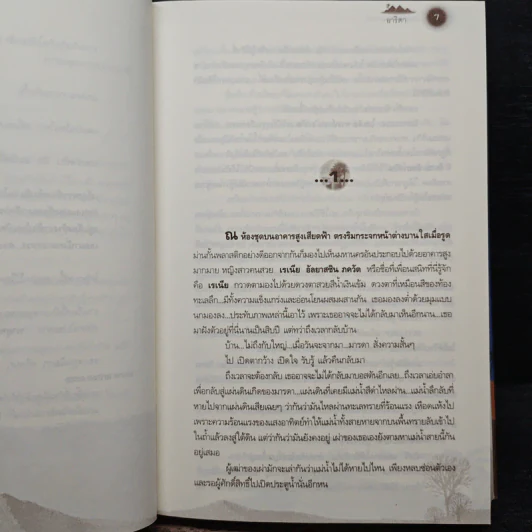 นาริตา
7
...1...
ณ ห้องชุดบนอาคารสูงเสียดฟ้า ตรงริมกระจกหน้าต่างบานใสเมื่อรูด
ม่านกั้นพลาสติกอย่างดีออกจากกันก็มองไปเห็นมหานครอันประกอบไปด้วยอาคารสูง
มากมาย หญิงสาวคนสวย เรเนีย อัลยาสซิน ภควัต หรือชื่อที่เพื่อนสนิทที่นี่รู้จัก
คือ เรเนีย กวาดตามองไปด้วยดวงตาสวยสีน้ำเงินเข้ม ดวงตาที่เหมือนสีของท้อง
ทะเลลึก...มีทั้งความแข็งแกร่งและอ่อนโยนผสมผสานกัน เธอมองลงต่ำด้วยมุมแบบ
นกมองลง...ประทับภาพเหล่านี้เอาไว้ เพราะเธออาจจะไม่ได้กลับมาเห็นอีกนาน...เธอ
มาฝังตัวอยู่ที่นี่นานเป็นสิบปี แต่ทว่าถึงเวลากลับบ้าน
บ้าน...ไม่ถึงกับใหญ่...เมื่อวันจะจากมา...มารดา สั่งความสั้นๆ
ไป เปิดตากว้าง เปิดใจ รับรู้ แล้วคืนกลับมา
ถึงเวลาจะต้องกลับ เธออาจจะไม่ได้กลับมาบอสตันอีกเลย...ถึงเวลาเอ่ยอำลา
เพื่อกลับสู่แผ่นดินเกิดของมารดา...แผ่นดินที่เคยมีแม่น้ำสีดำไหลผ่าน...แม่น้ำลึกลับที่
หายไปจากแผ่นดินเสียเฉยๆ ว่ากันว่ามันไหลผ่านทะเลทรายที่ร้อนแรง เหือดแห้งไป
เพราะความร้อนแรงของแสงอาทิตย์ทำให้แม่น้ำทั้งสายหายจากบนพื้นทรายลับเข้าไป
ในถ้ำแล้วลงสู่ใต้ดิน แต่ว่ากันว่ามันยังคงอยู่ เผ่าของเธอเองยังตามหาแม่น้ำสายนี้กัน
อยู่เสมอ
ผู้เฒ่าของเผ่ามักจะเล่ากันว่าแม่น้ำไม่ได้หายไปไหน เพียงหลบซ่อนตัวเอง
และรอผู้ศักดิ์สิทธิ์ไปเปิดประตูน้ำนั่นอีกหน